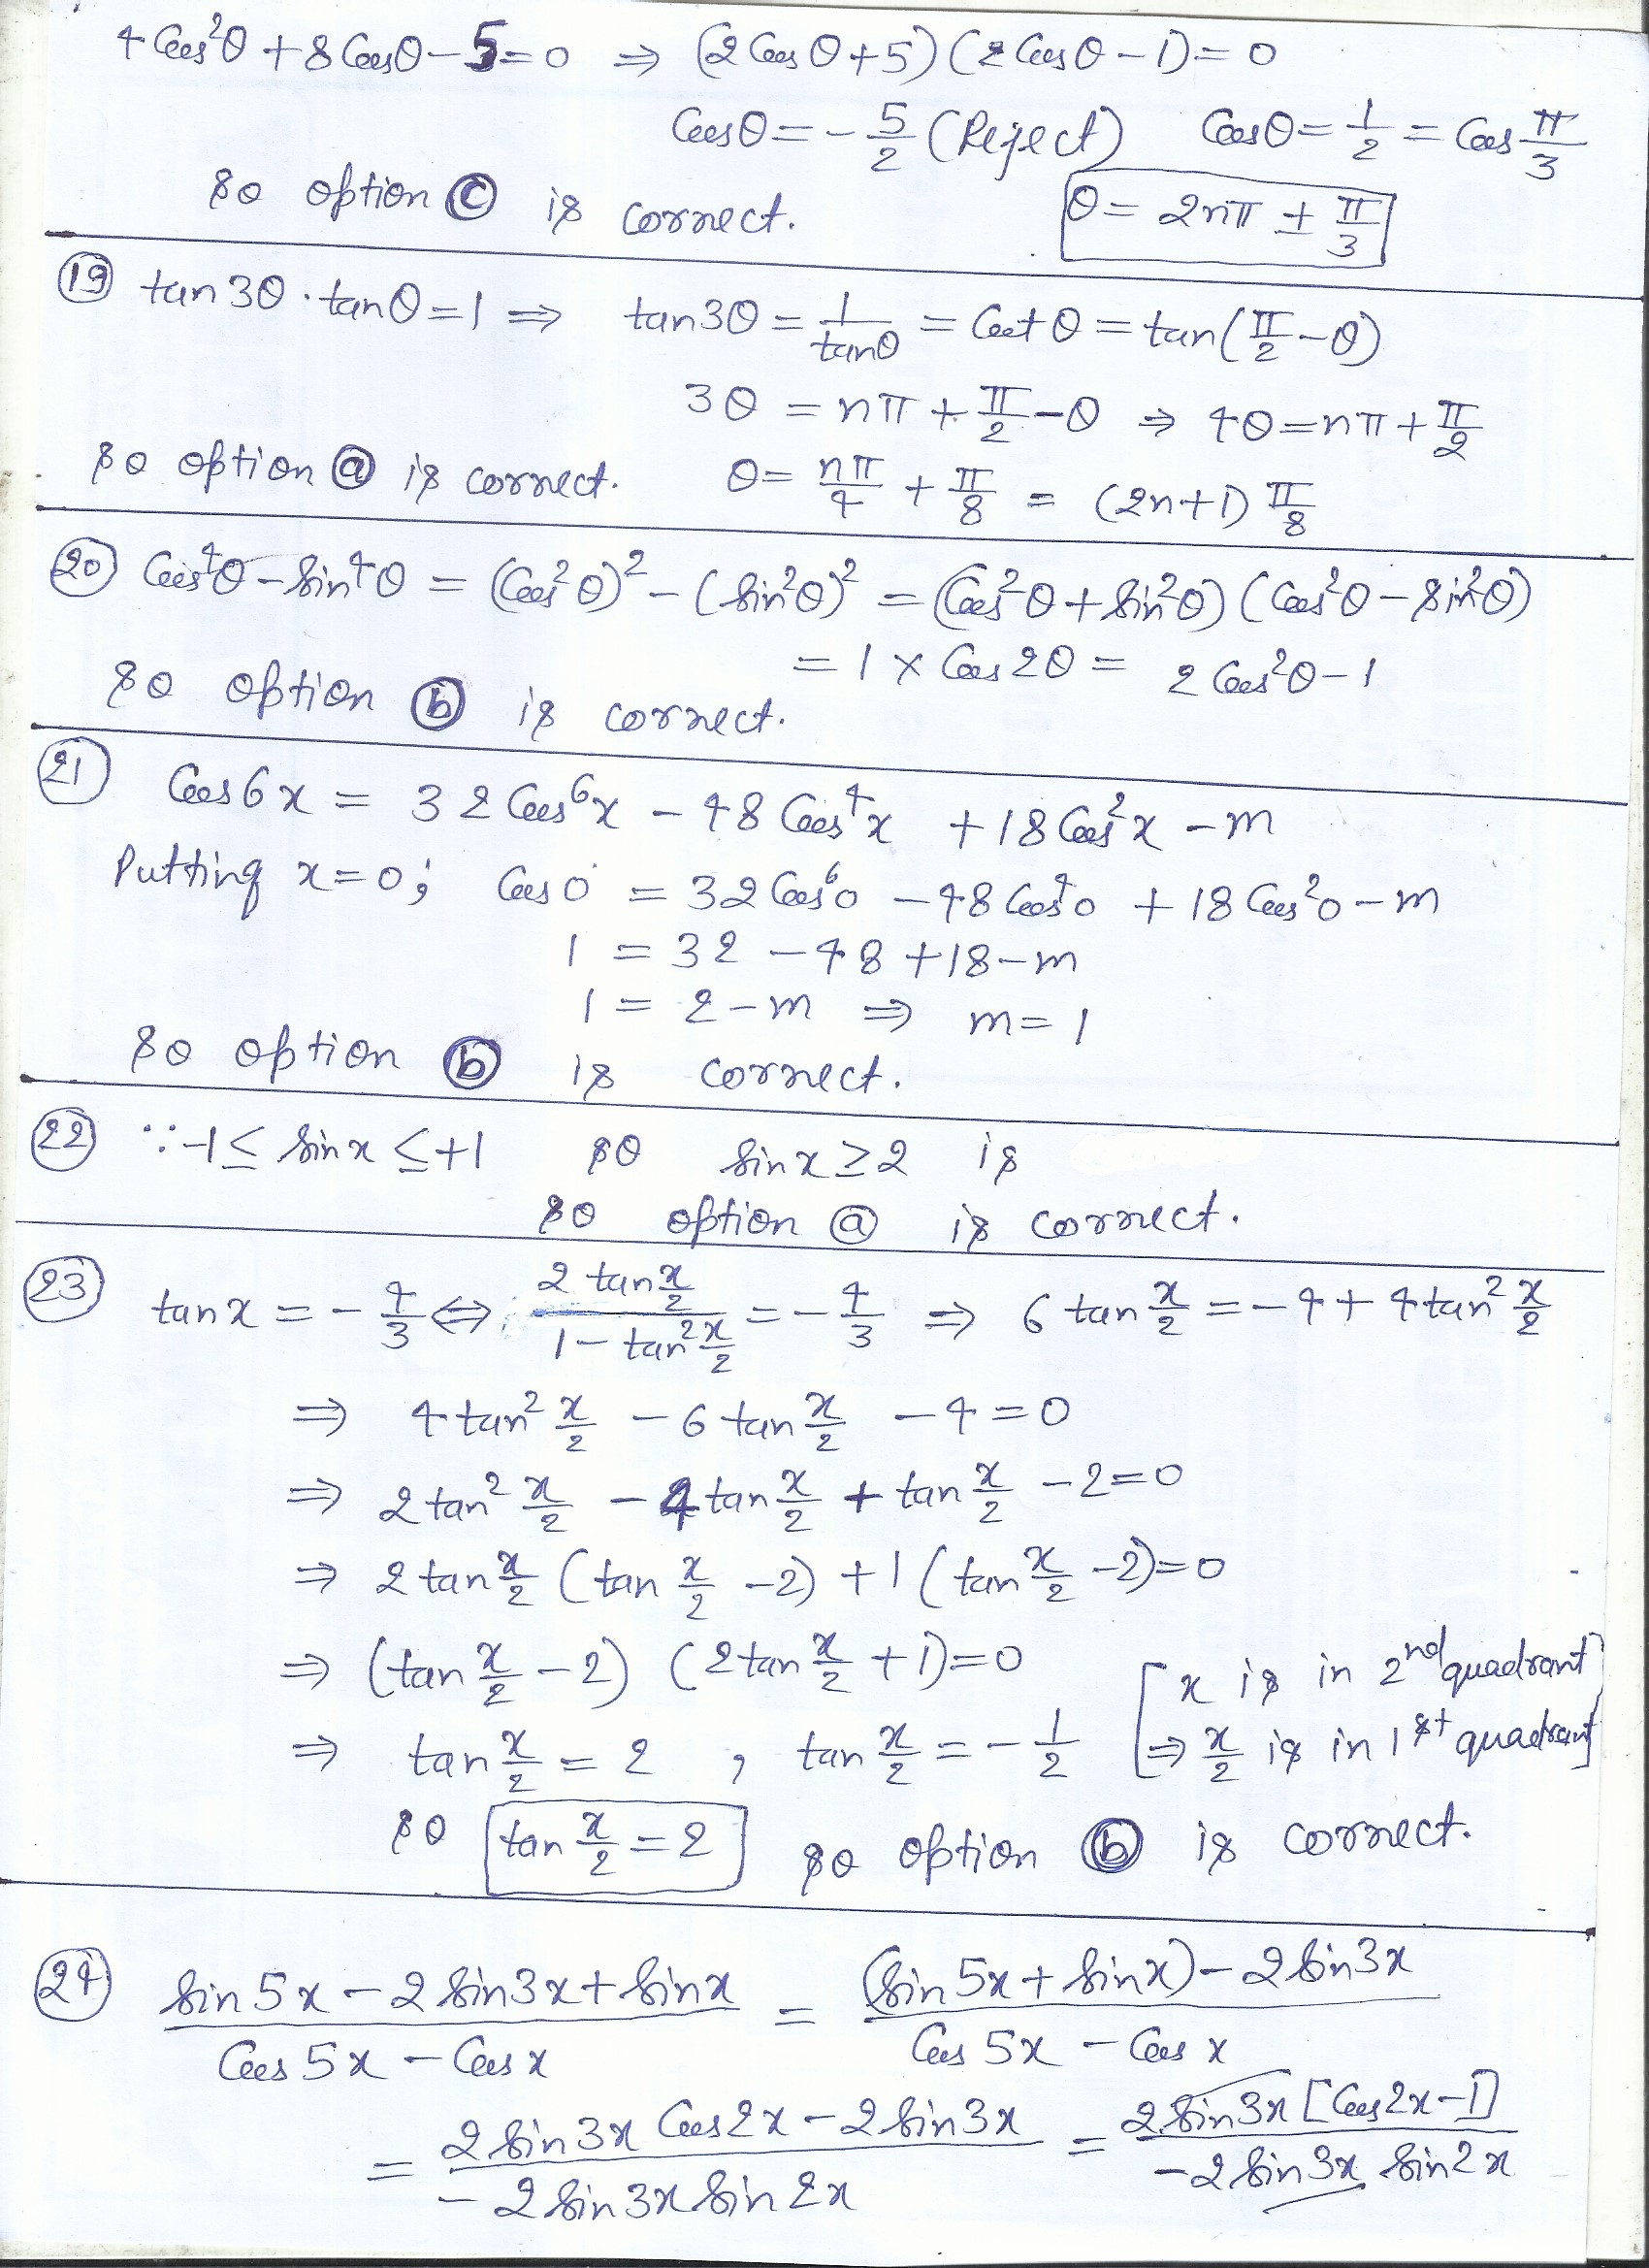 4 Cos²θ + 8 Cosθ − 5 = 0 ⇒ (2 Cos θ + 5) (2 Cos θ − 1) = 0
Cosθ = − 5/2 (Reject) Cosθ = 1/2 = Cos π/3
so option ⓒ is correct. θ = 2nπ ± π/3
⑲ tan 3θ · tan θ = 1 ⇒ tan 3θ = 1/tanθ = Cot θ = tan(π/2 − θ)
3θ = nπ + π/2 − θ ⇒ 4θ = nπ + π/2
so option ⓐ is correct. θ = nπ/4 + π/8 = (2n+1) π/8
⑳ Cos⁴θ − sin⁴θ = (Cos²θ)² − (sin²θ)² = (Cos²θ + sin²θ) (Cos²θ − sin²θ)
= 1 × Cos 2θ = 2 Cos²θ − 1
so option ⓑ is correct.
㉑ Cos 6x = 32 Cos⁶x − 48 Cos⁴x + 18 Cos²x − m
Putting x = 0; Cos 0 = 32 Cos⁶0 − 48 Cos⁴0 + 18 Cos²0 − m
1 = 32 − 48 + 18 − m
1 = 2 − m ⇒ m = 1
so option ⓑ is correct.
㉒ ∵ −1 ≤ sin x ≤ +1 so sin x ≥ 2 is
so option ⓐ is correct.
㉓ tan x = − 4/3 ⇔ 2 tan x/2 / 1 − tan² x/2 = − 4/3 ⇒ 6 tan x/2 = − 4 + 4 tan² x/2
⇒ 4 tan² x/2 − 6 tan x/2 − 4 = 0
⇒ 2 tan² x/2 − 4 tan x/2 + tan x/2 − 2 = 0
⇒ 2 tan x/2 (tan x/2 − 2) + 1 (tan x/2 − 2) = 0
⇒ (tan x/2 − 2) (2 tan x/2 + 1) = 0 [x is in 2nd quadrant
⇒ tan x/2 = 2 , tan x/2 = − 1/2 ⇒ x/2 is in 1st quadrant]
so tan x/2 = 2 so option ⓑ is correct.
㉔ sin 5x − 2 sin 3x + sin x / Cos 5x − Cos x = (sin 5x + sin x) − 2 sin 3x / Cos 5x − Cos x
= 2 sin 3x Cos 2x − 2 sin 3x / − 2 sin 3x sin 2x = 2 sin 3x [Cos 2x − 1] / − 2 sin 3x sin 2x